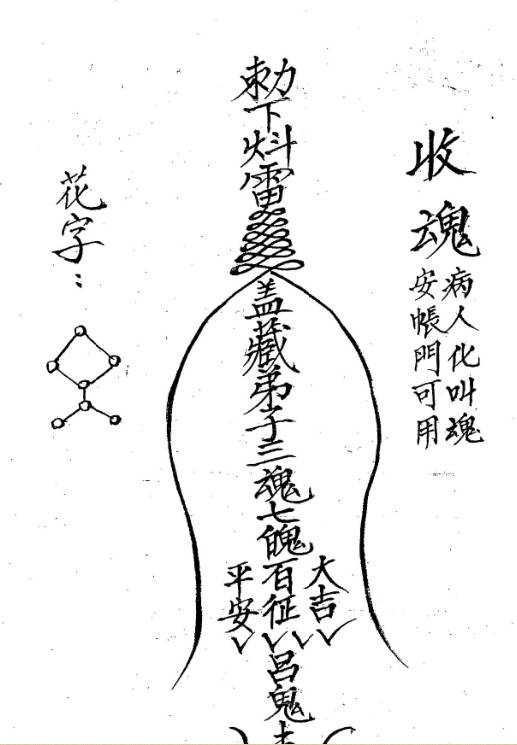 收魂
病人化叫魂
安帳門可用
勅下炓雷
盖藏弟子三魂七魄百征
大吉
平安
呂鬼
花字：